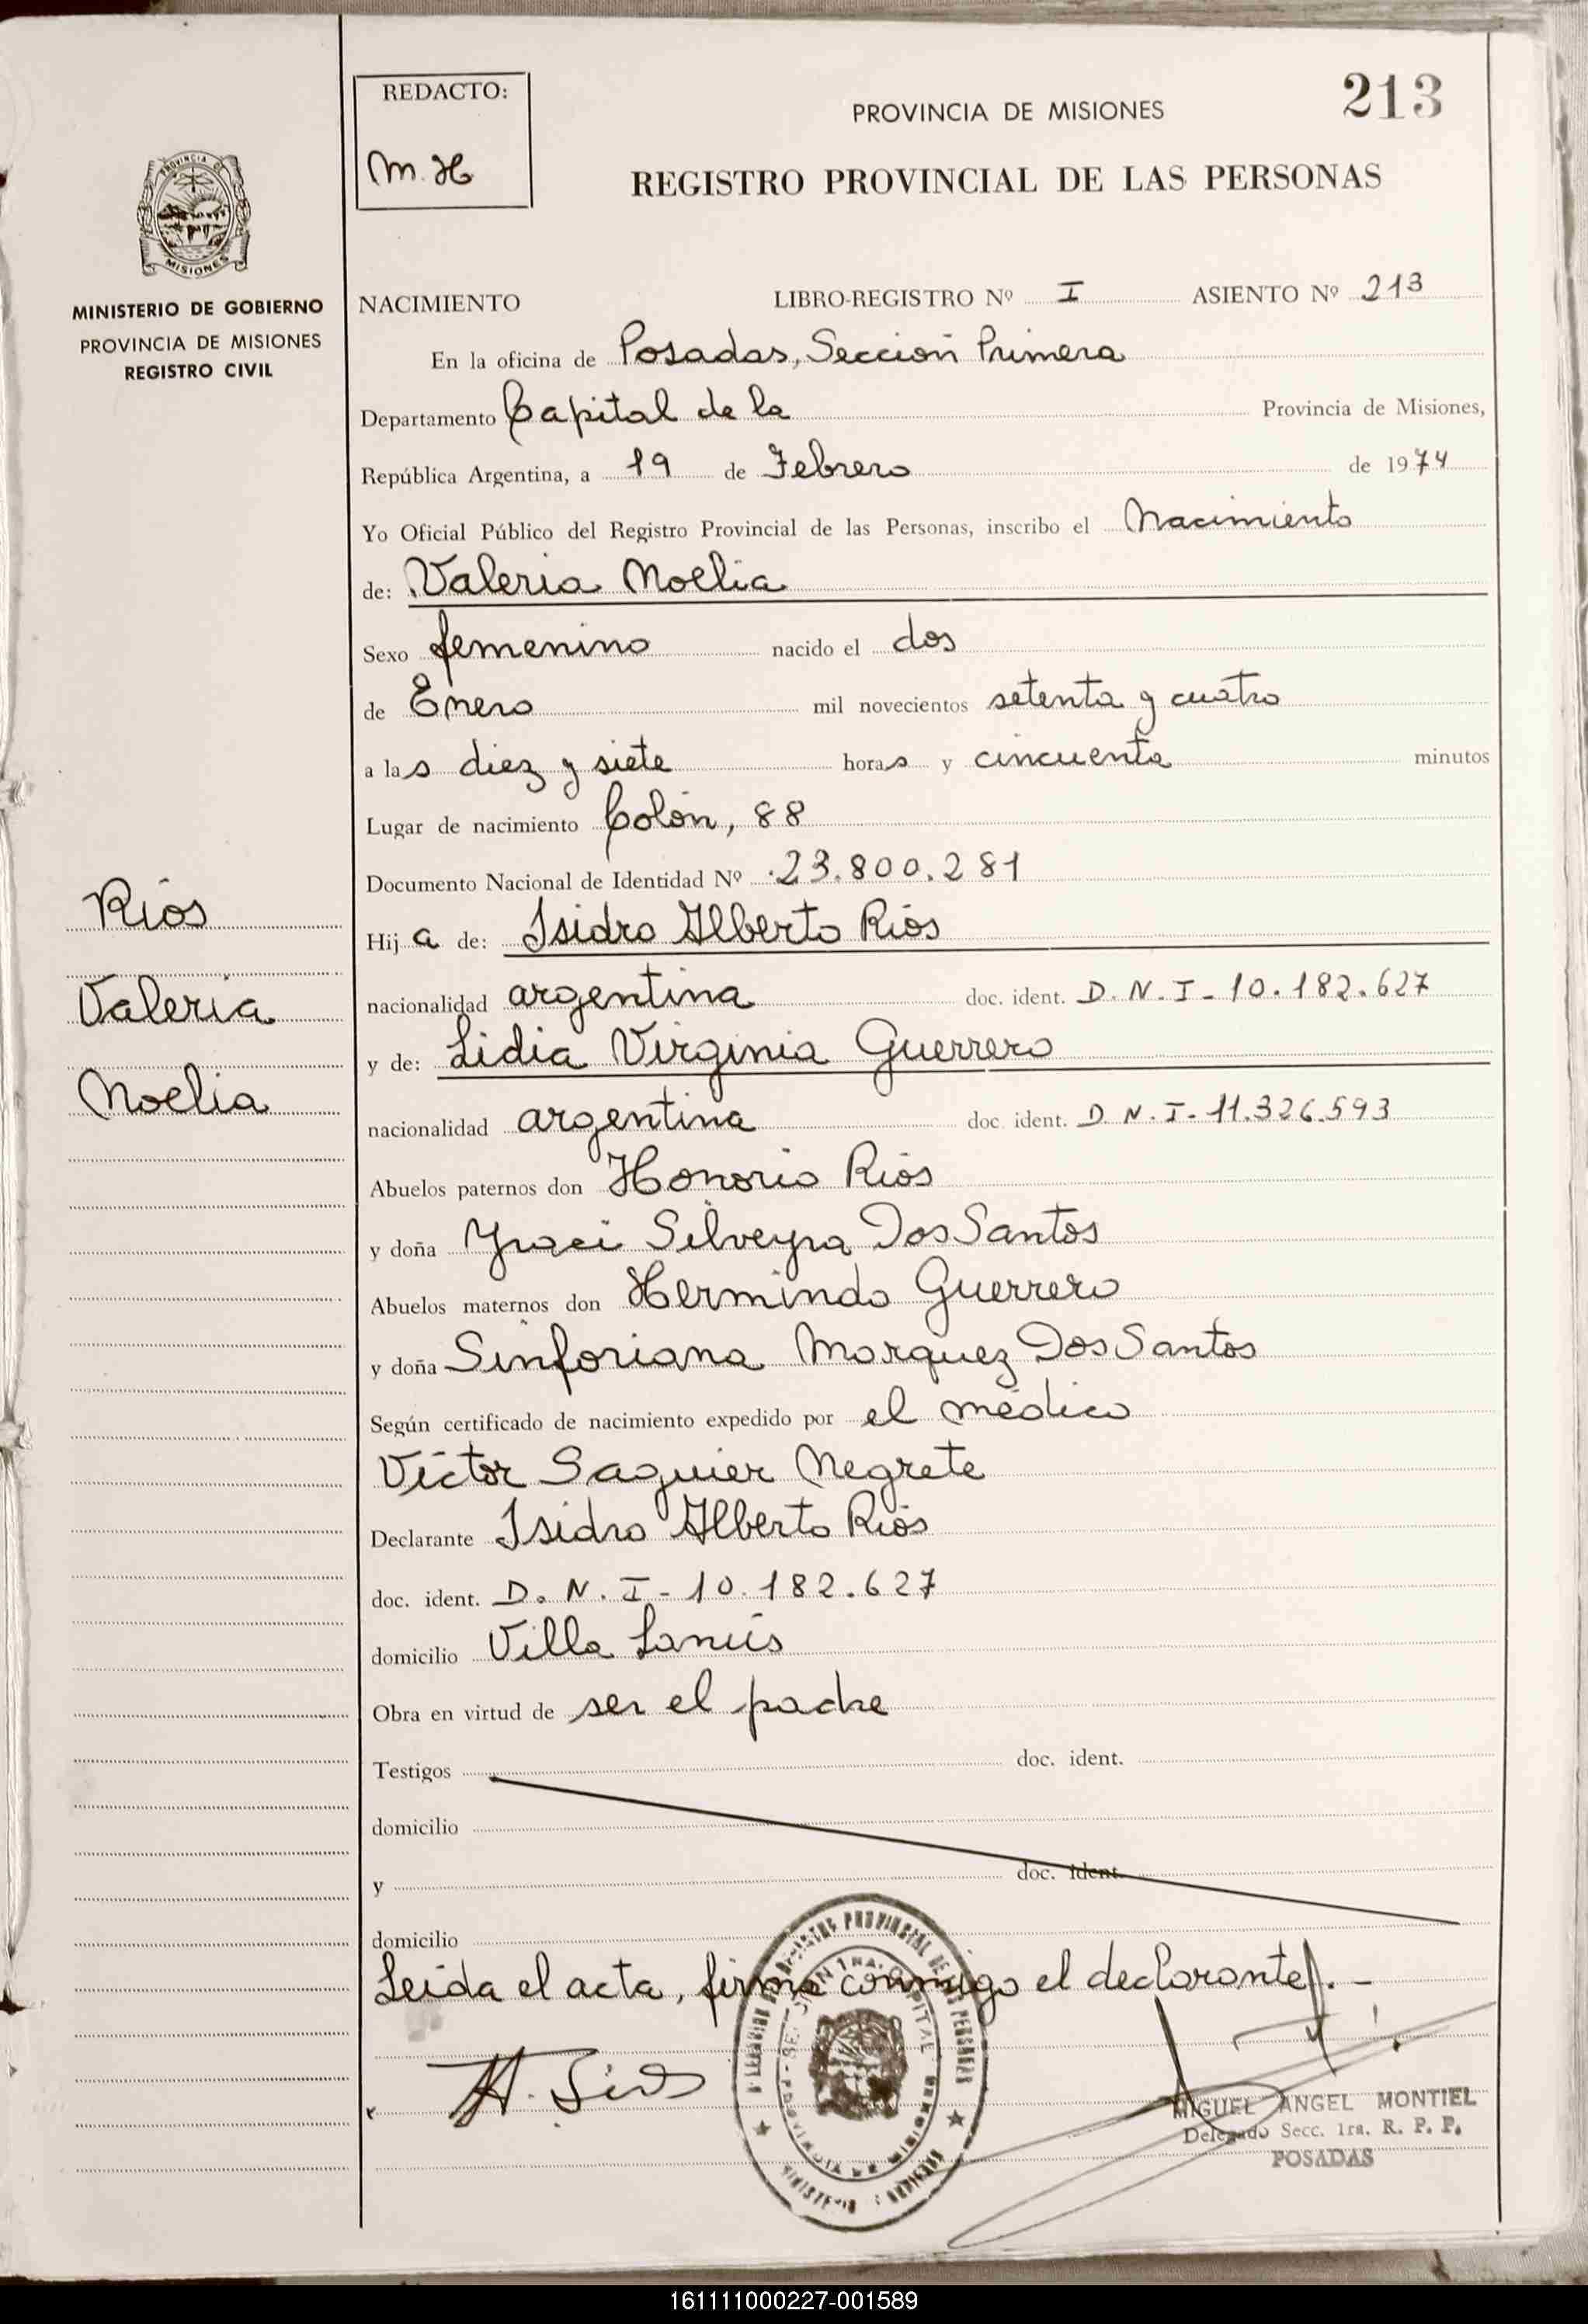 REDACTO:
M. H
PROVINCIA DE MISIONES
213
REGISTRO PROVINCIAL DE LAS PERSONAS
PROVINCIA DE
MISIONES
MINISTERIO DE GOBIERNO
PROVINCIA DE MISIONES
REGISTRO CIVIL
NACIMIENTO LIBRO-REGISTRO Nº I ASIENTO Nº 213
En la oficina de Posadas, Sección Primera
Departamento Capital de la Provincia de Misiones,
República Argentina, a 19 de Febrero de 1974
Yo Oficial Público del Registro Provincial de las Personas, inscribo el Nacimiento
de: Valeria Noelia
Sexo femenino nacido el dos
de Enero mil novecientos setenta y cuatro
a las diez y siete horas y cincuenta minutos
Lugar de nacimiento Colón, 88
Documento Nacional de Identidad Nº 23.800.281
Hija de: Isidro Alberto Ríos
nacionalidad argentina doc. ident. D.N.I- 10.182.627
y de: Lidia Virginia Guerrero
nacionalidad argentina doc. ident. D.N.I- 11.326.593
Abuelos paternos don Honorio Ríos
y doña Silveyra Dos Santos
Abuelos maternos don Hermindo Guerrero
y doña Sinforiana Marquez Dos Santos
Según certificado de nacimiento expedido por el médico
Víctor Saguier Negrete
Declarante Isidro Alberto Ríos
doc. ident. D.N.I- 10.182.627
domicilio Villa Lanús
Obra en virtud de ser el padre
Testigos doc. ident.
domicilio
y doc. ident.
domicilio
Leída el acta, firma conmigo el declarante.-
Ríos
Valeria
Noelia
MIGUEL ANGEL MONTIEL
Delegado Secc. 1ra. R. P. P.
POSADAS
161111000227-001589